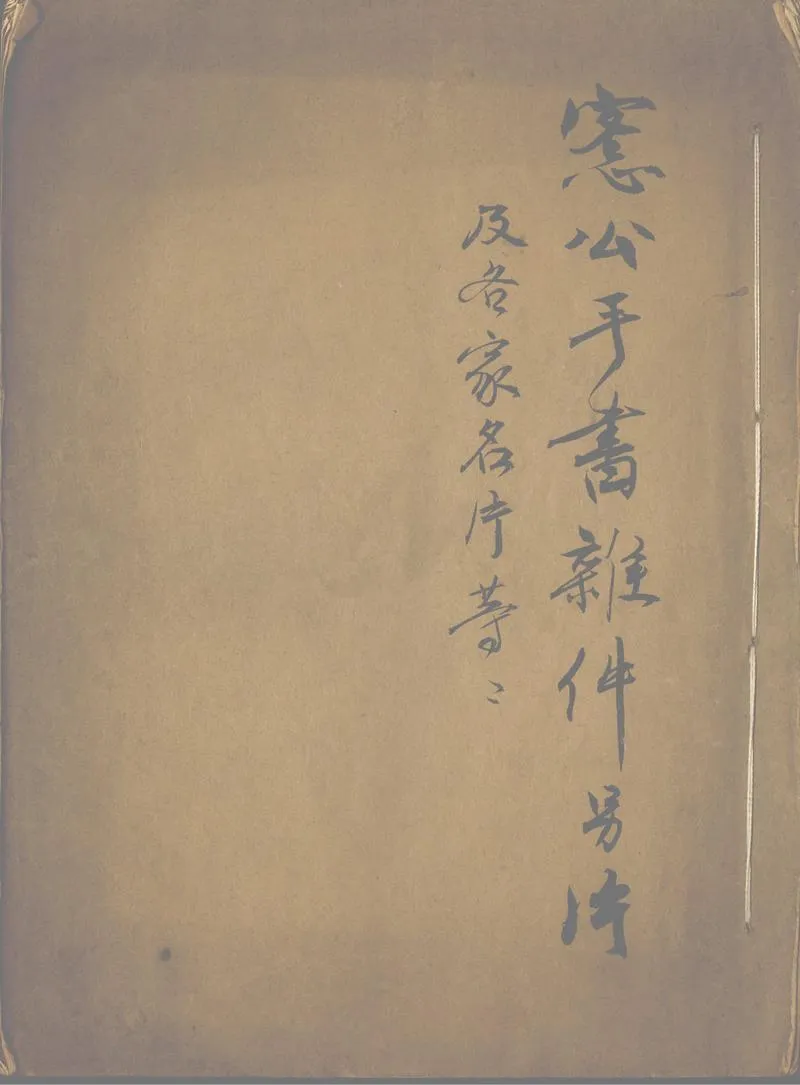 窻公手書雜件另片
及各家名片等〻